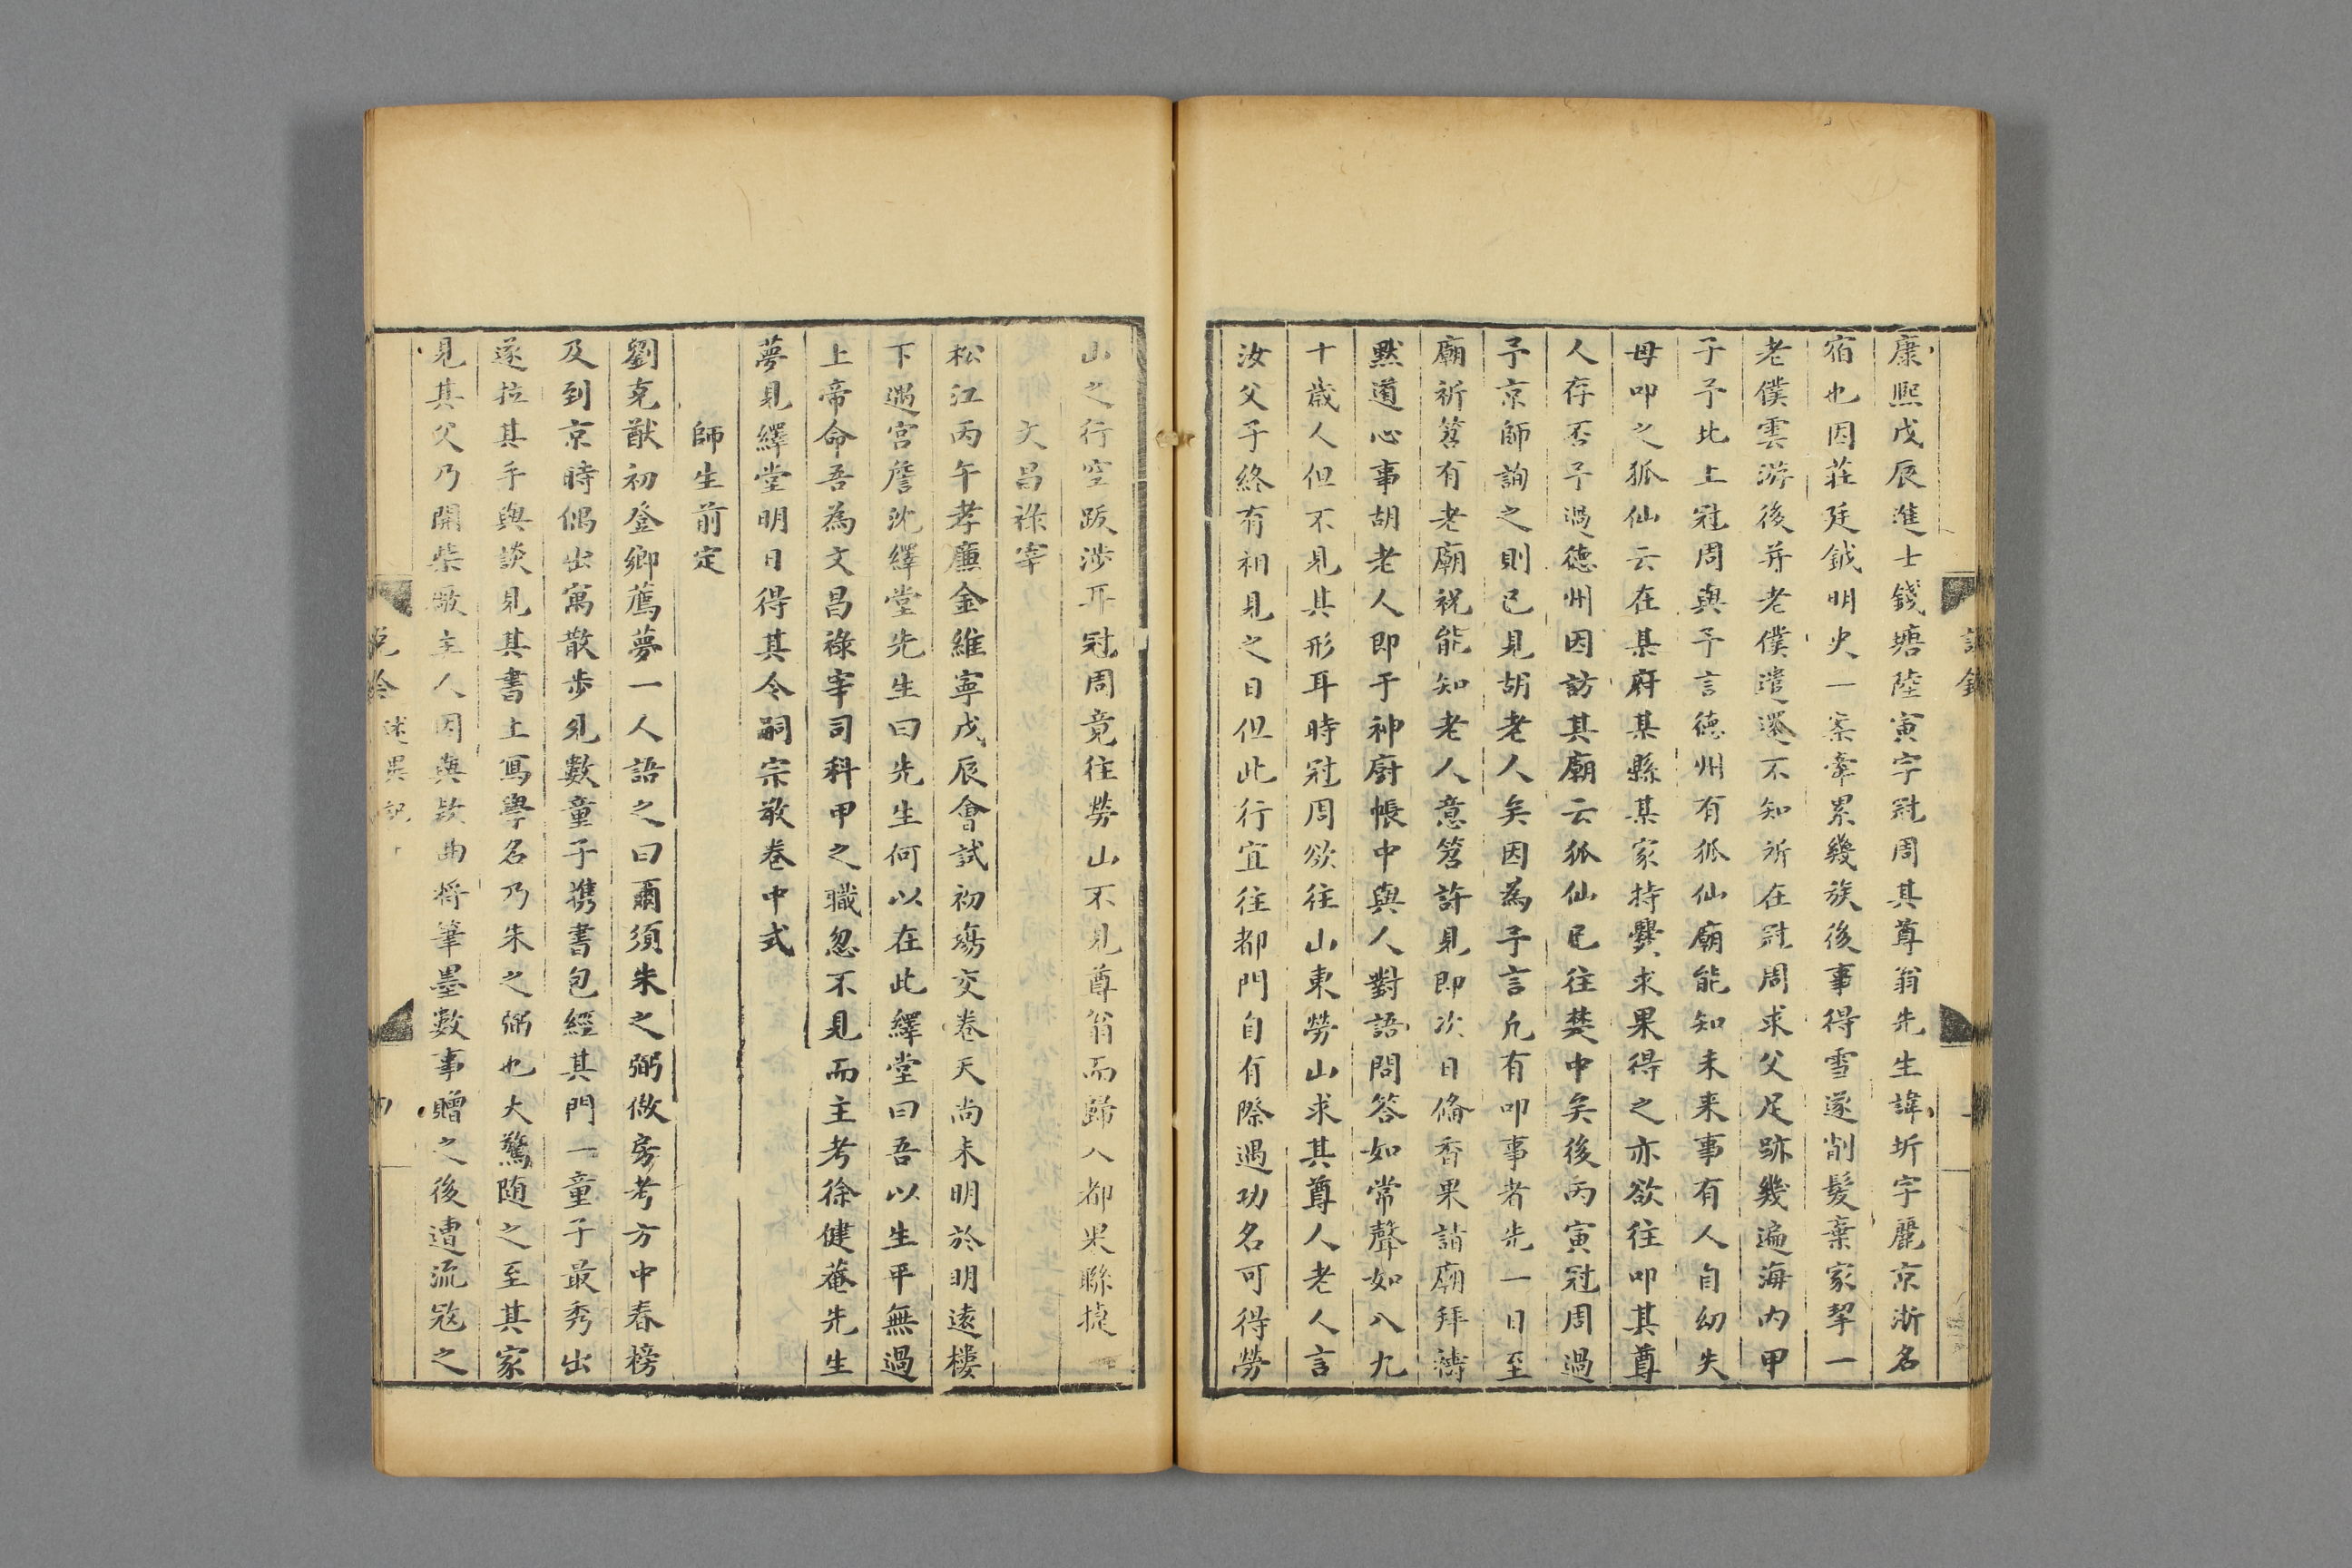 康熙戊辰進士錢塘陸寅字冠周其尊翁先生諱圻字麗京浙名
宿也因莊廷鉞明史一案牽累幾族後事得雪遂削髮棄家挈一
老僕雲游後并老僕遣還不知所在冠周求父足跡幾遍海內甲
子予北上冠周與予言德州有狐仙廟能知未来事有人自幼失
母叩之狐仙云在某府某縣某家持釁求果得之亦欲往叩其尊
人存否予過德州因訪其廟云狐仙已往楚中矣後丙寅冠周過
予京師詢之則已見胡老人矣因為予言凢有叩事者先一日至
廟祈筶有老廟祝能知老人意筶許見即次日脩香果詣廟拜禱
黙道心事胡老人即于神廚帳中與人對語問答如常聲如八九
十歲人但不見其形耳時冠周欲往山東勞山求其尊人老人言
汝父子終有相見之日但此行宜往都門自有際遇功名可得勞
山之行空跋涉耳冠周竟往勞山不見尊翁而歸入都果聯捷
文昌祿宰
松江丙午孝廉金維寧戊辰會試初塲交卷天尚未明於明遠樓
下遇宮詹沈繹堂先生曰先生何以在此繹堂曰吾以生平無過
上帝命吾為文昌祿宰司科甲之職忽不見而主考徐健菴先生
夢見繹堂明日得其令嗣宗敬卷中式
師生前定
劉克猷初登鄉薦夢一人語之曰爾須朱之弼做房考方中春榜
及到京時偶出寓散步見數童子携書包經其門一童子最秀出
遂拉其手與談見其書上寫學名乃朱之弼也大驚随之至其家
見其父乃開柴厰主人因與欵曲將筆墨數事贈之後遭流寇之
說鈴 述異記